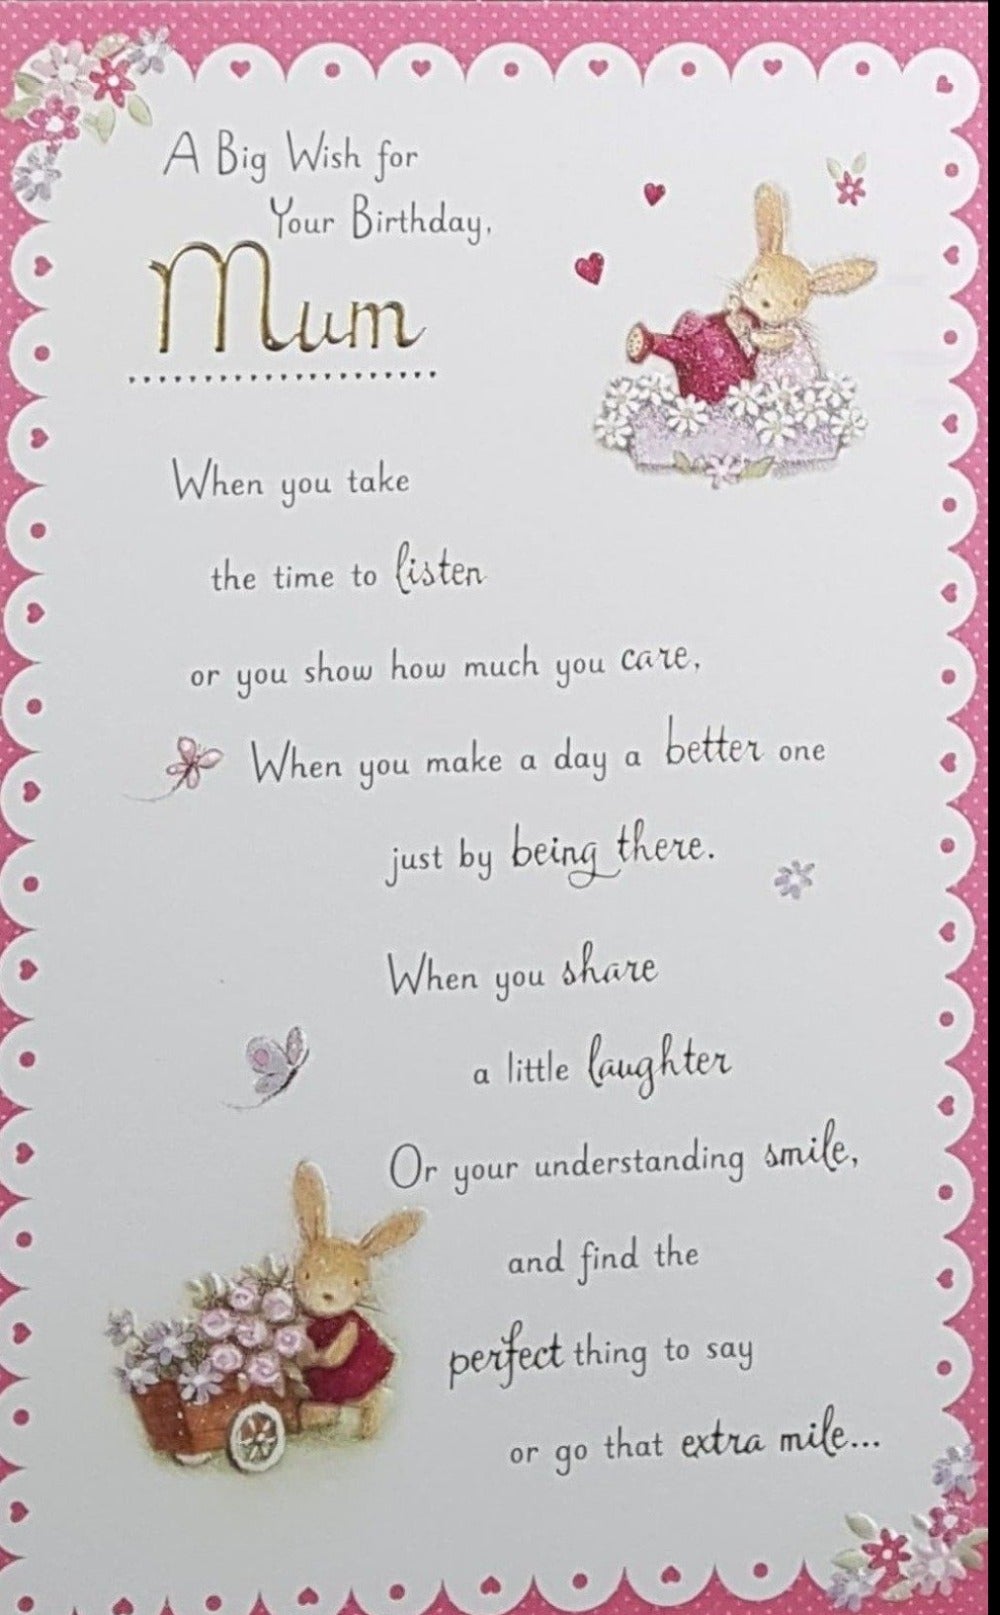 A Big Wish for
Your Birthday,
Mum
When you take
the time to listen
or you show how much you care,
When you make a day a better one
just by being there.
When you share
a little laughter
Or your understanding smile,
and find the
perfect thing to say
or go that extra mile...